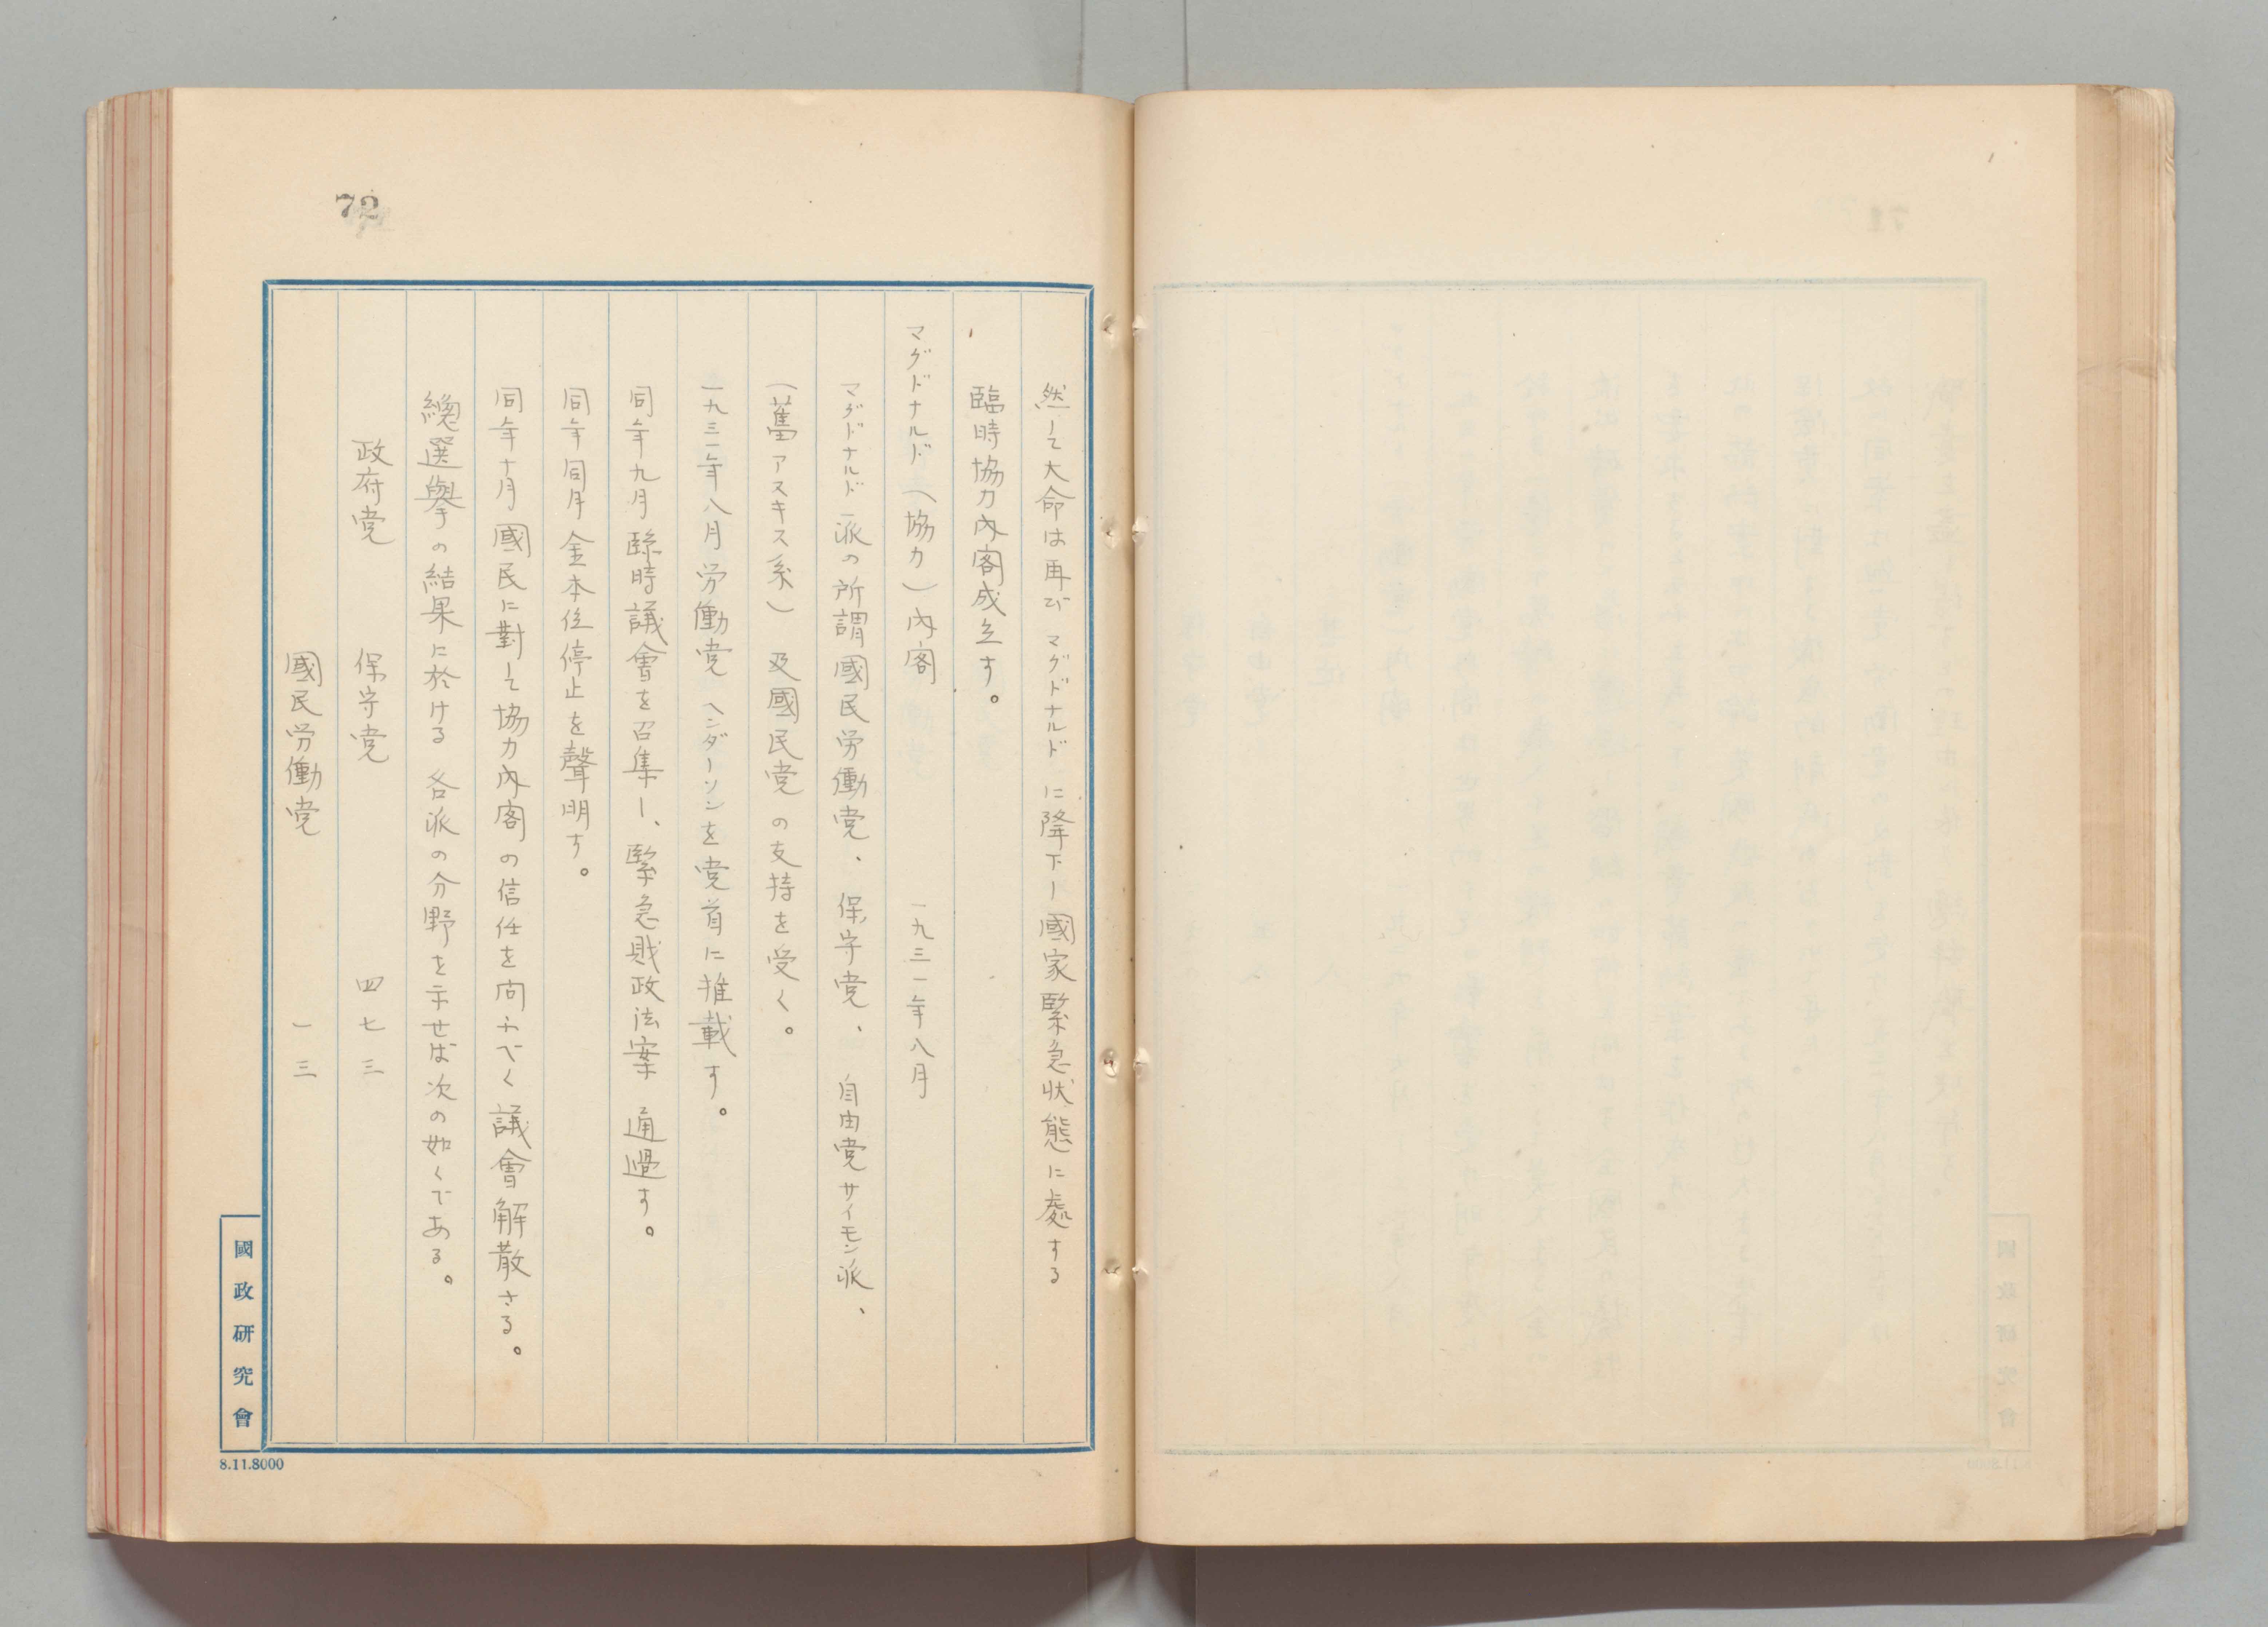 72
然して大命は再びマグドナルドに降下し國家緊急状態に處する
臨時協力内閣成立す。
マグドナルド（協力）内閣　一九三一年八月
マグドナルド派の所謂國民労働党、保守党、自由党サイモン派、
（舊アスキス系）及國民党の支持を受く。
一九三一年八月労働党ヘンダーソンを党首に推載す。
同年九月臨時議會を召集し、緊急財政法案通過す。
同年同月金本位停止を聲明す。
同年十月國民に對して協力内閣の信任を問ふべく議會解散さる。
總選擧の結果に於ける各派の分野を示せば次の如くである。
政府党　保守党　四七三
國民労働党　一三
國政研究會
8.11.8000